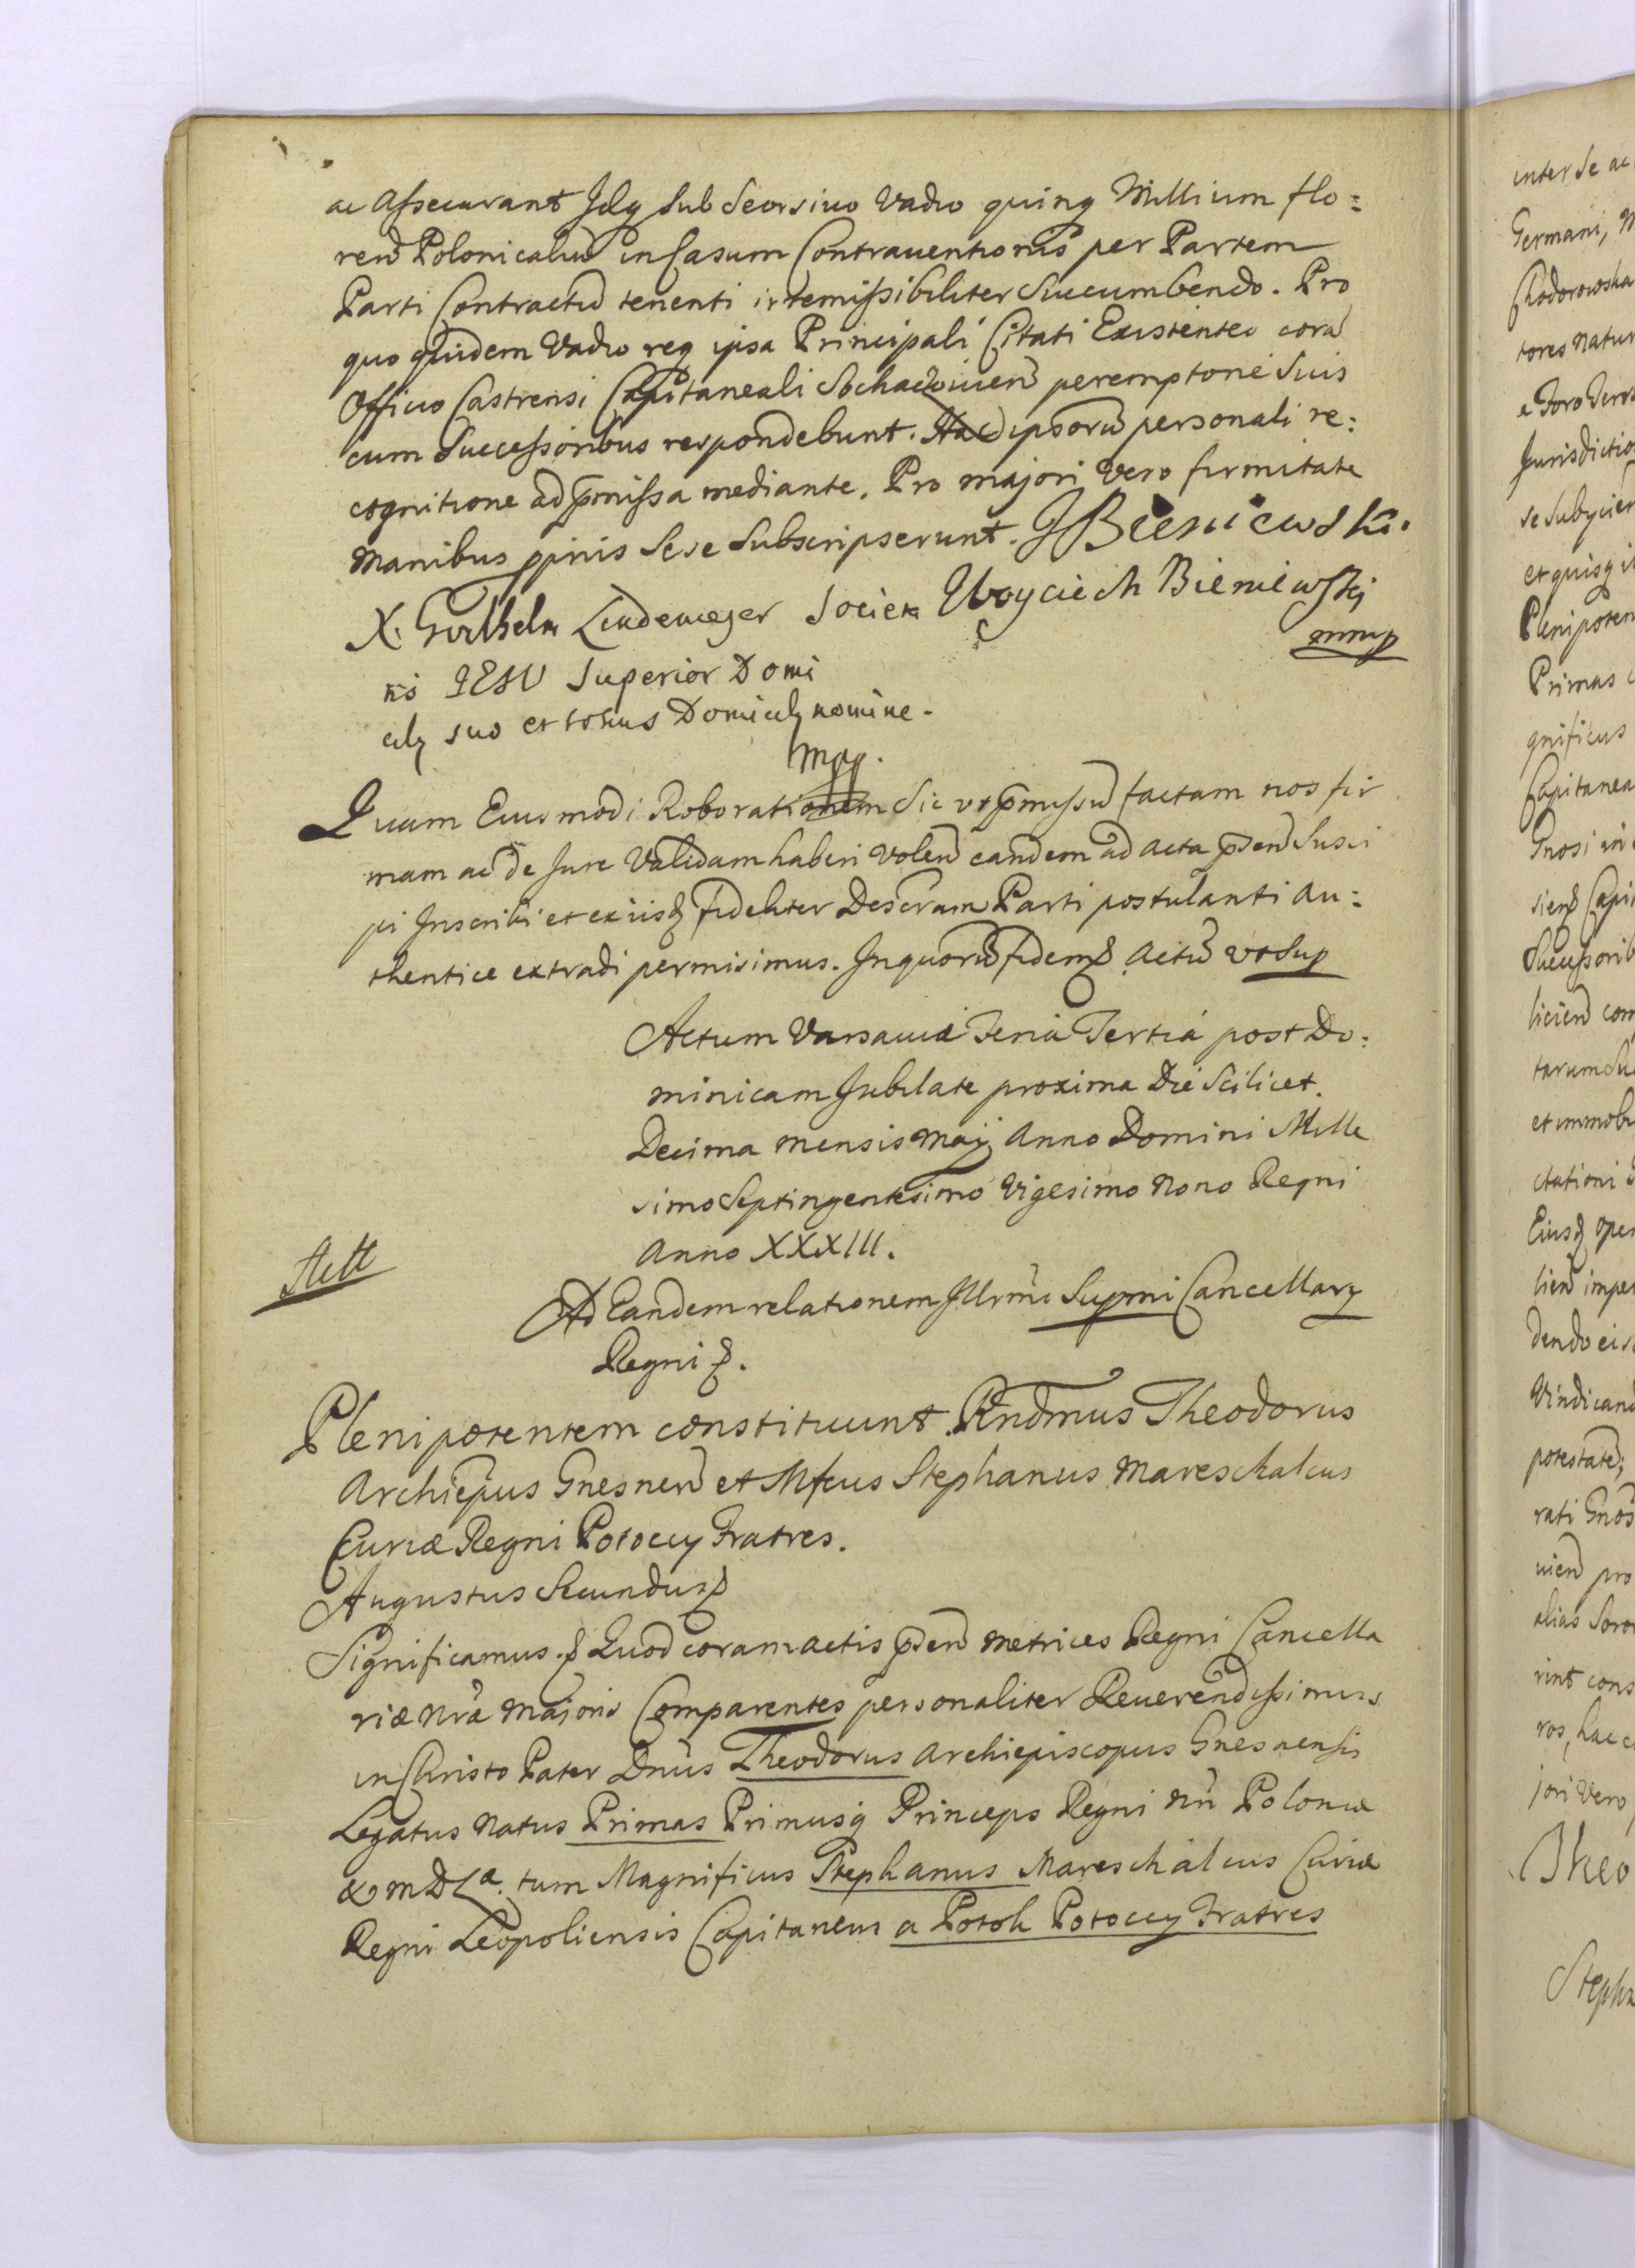 ac Assecurant Idq sub seorsivo Vadio quinq Millium flo:
ren Polonicaliu in Casum Contrauentionis per Partem
Parti Contractu tenenti irremissibiliter succumbendo. Pro
quo quidem Vadio req ipsa Principali Citati Existentes cora
Officio Castrensi Capitaneali Sochaczouien peremptorie suis
cum Successoribus respondebunt. ipsoru personali re:
cognitione ad pmissa mediante. Pro majori Vero firmitate
Manibus ppriis sese subscripserunt. JBieniewski.
X. Wilhelm Lindemeyer Societa Woyciech Bieniewski
mmp
tis IESU Superior Domi
cilij suo et totius Domicilij nomine.
mpp.
Quam Eiusmodi Roborationem sic ut pmissu factam nos fir
mam ac de Jure Validam haberi Volen eandem ad acta psen susci
pi Inscribi et ex iisd fideliter Descram Parti postulanti au:
thentice extradi permisimus. In quoru fidem Actu ut sup
Actum Varsauiæ Feria Tertia post Do:
minicam Jubilate proxima Die Scilicet
Decima mensis Maij Anno Domini Mille
simo Septingentesimo Vigesimo Nono Regni
Anno XXXIII.
Ad Eandem relationem Illrmi Supmi Cancellary
Regni &.
Plenipotentem constituunt Rndmus Theodorus
Archiepus Gnesnen et Mfcus Stephanus Mareschalcus
Curiæ Regni Potoccy Fratres.
Augustus Secundus &
Significamus & Quod coram actis psen Metrices Regni Cancella
riæ Nræ Majoris Comparentes personaliter Reuerendissimus
in Christo Pater Dnus Theodorus Archiepiscopus Gnesnensis
Legatus Natus Primas Primusq Princeps Regni Nri Poloniæ
& M D La. tum Magnificus Stephanus Mareschalcus Curiæ
Regni Leopoliensis Capitaneus a Potok Potoccy Fratres
inter se ac
Germani,
Chodorowska
tores natur
a Foro
Jurisdictio
se subycien
et quisq
Plenipoten
Primas
gnificus
Capitanea
Gnosi
Capi
Successorib
licien com
tarum
et immobi
ctationi
Eiusd
lien impe
dendo eis
Vindicand
potestate;
rati Gnos
uien pro
alias
rint cons
ros, hac
jori Vero
Theo
Stepha